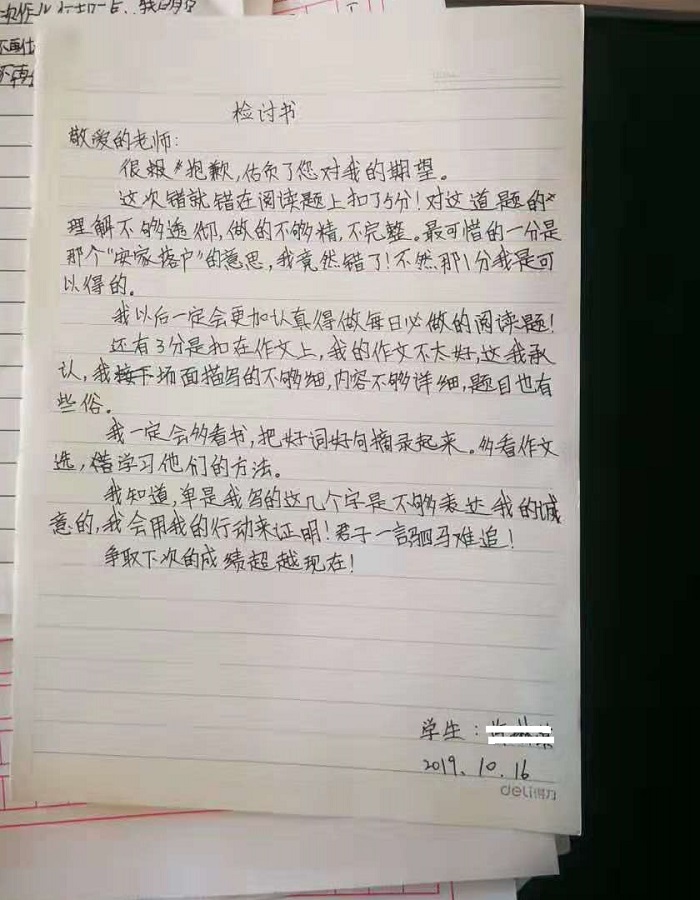 检讨书
敬爱的老师：
很抱歉，估负了您对我的期望。
这次错就错在阅读题上扣了5分！对这道题的
理解不够透彻，做的不够精，不完整。最可惜的一分是
那个“安家落户”的意思，我竟然错了！不然那1分我是可
以得的。
我以后一定会更加认真得做每日必做的阅读题！
还有3分是扣在作文上，我的作文不太好，这我承
认，我场面描写的不够细，内容不够详细，题目也有
些俗。
我一定会多看书，把好词好句摘录起来。多看作文
选，借学习他们的方法。
我知道，单是我写的这几个字是不够表达我的诚
意的，我会用我的行动来证明！君子一言驷马难追！
争取下次的成绩超越现在！
学生：
2019.10.16
deli得力